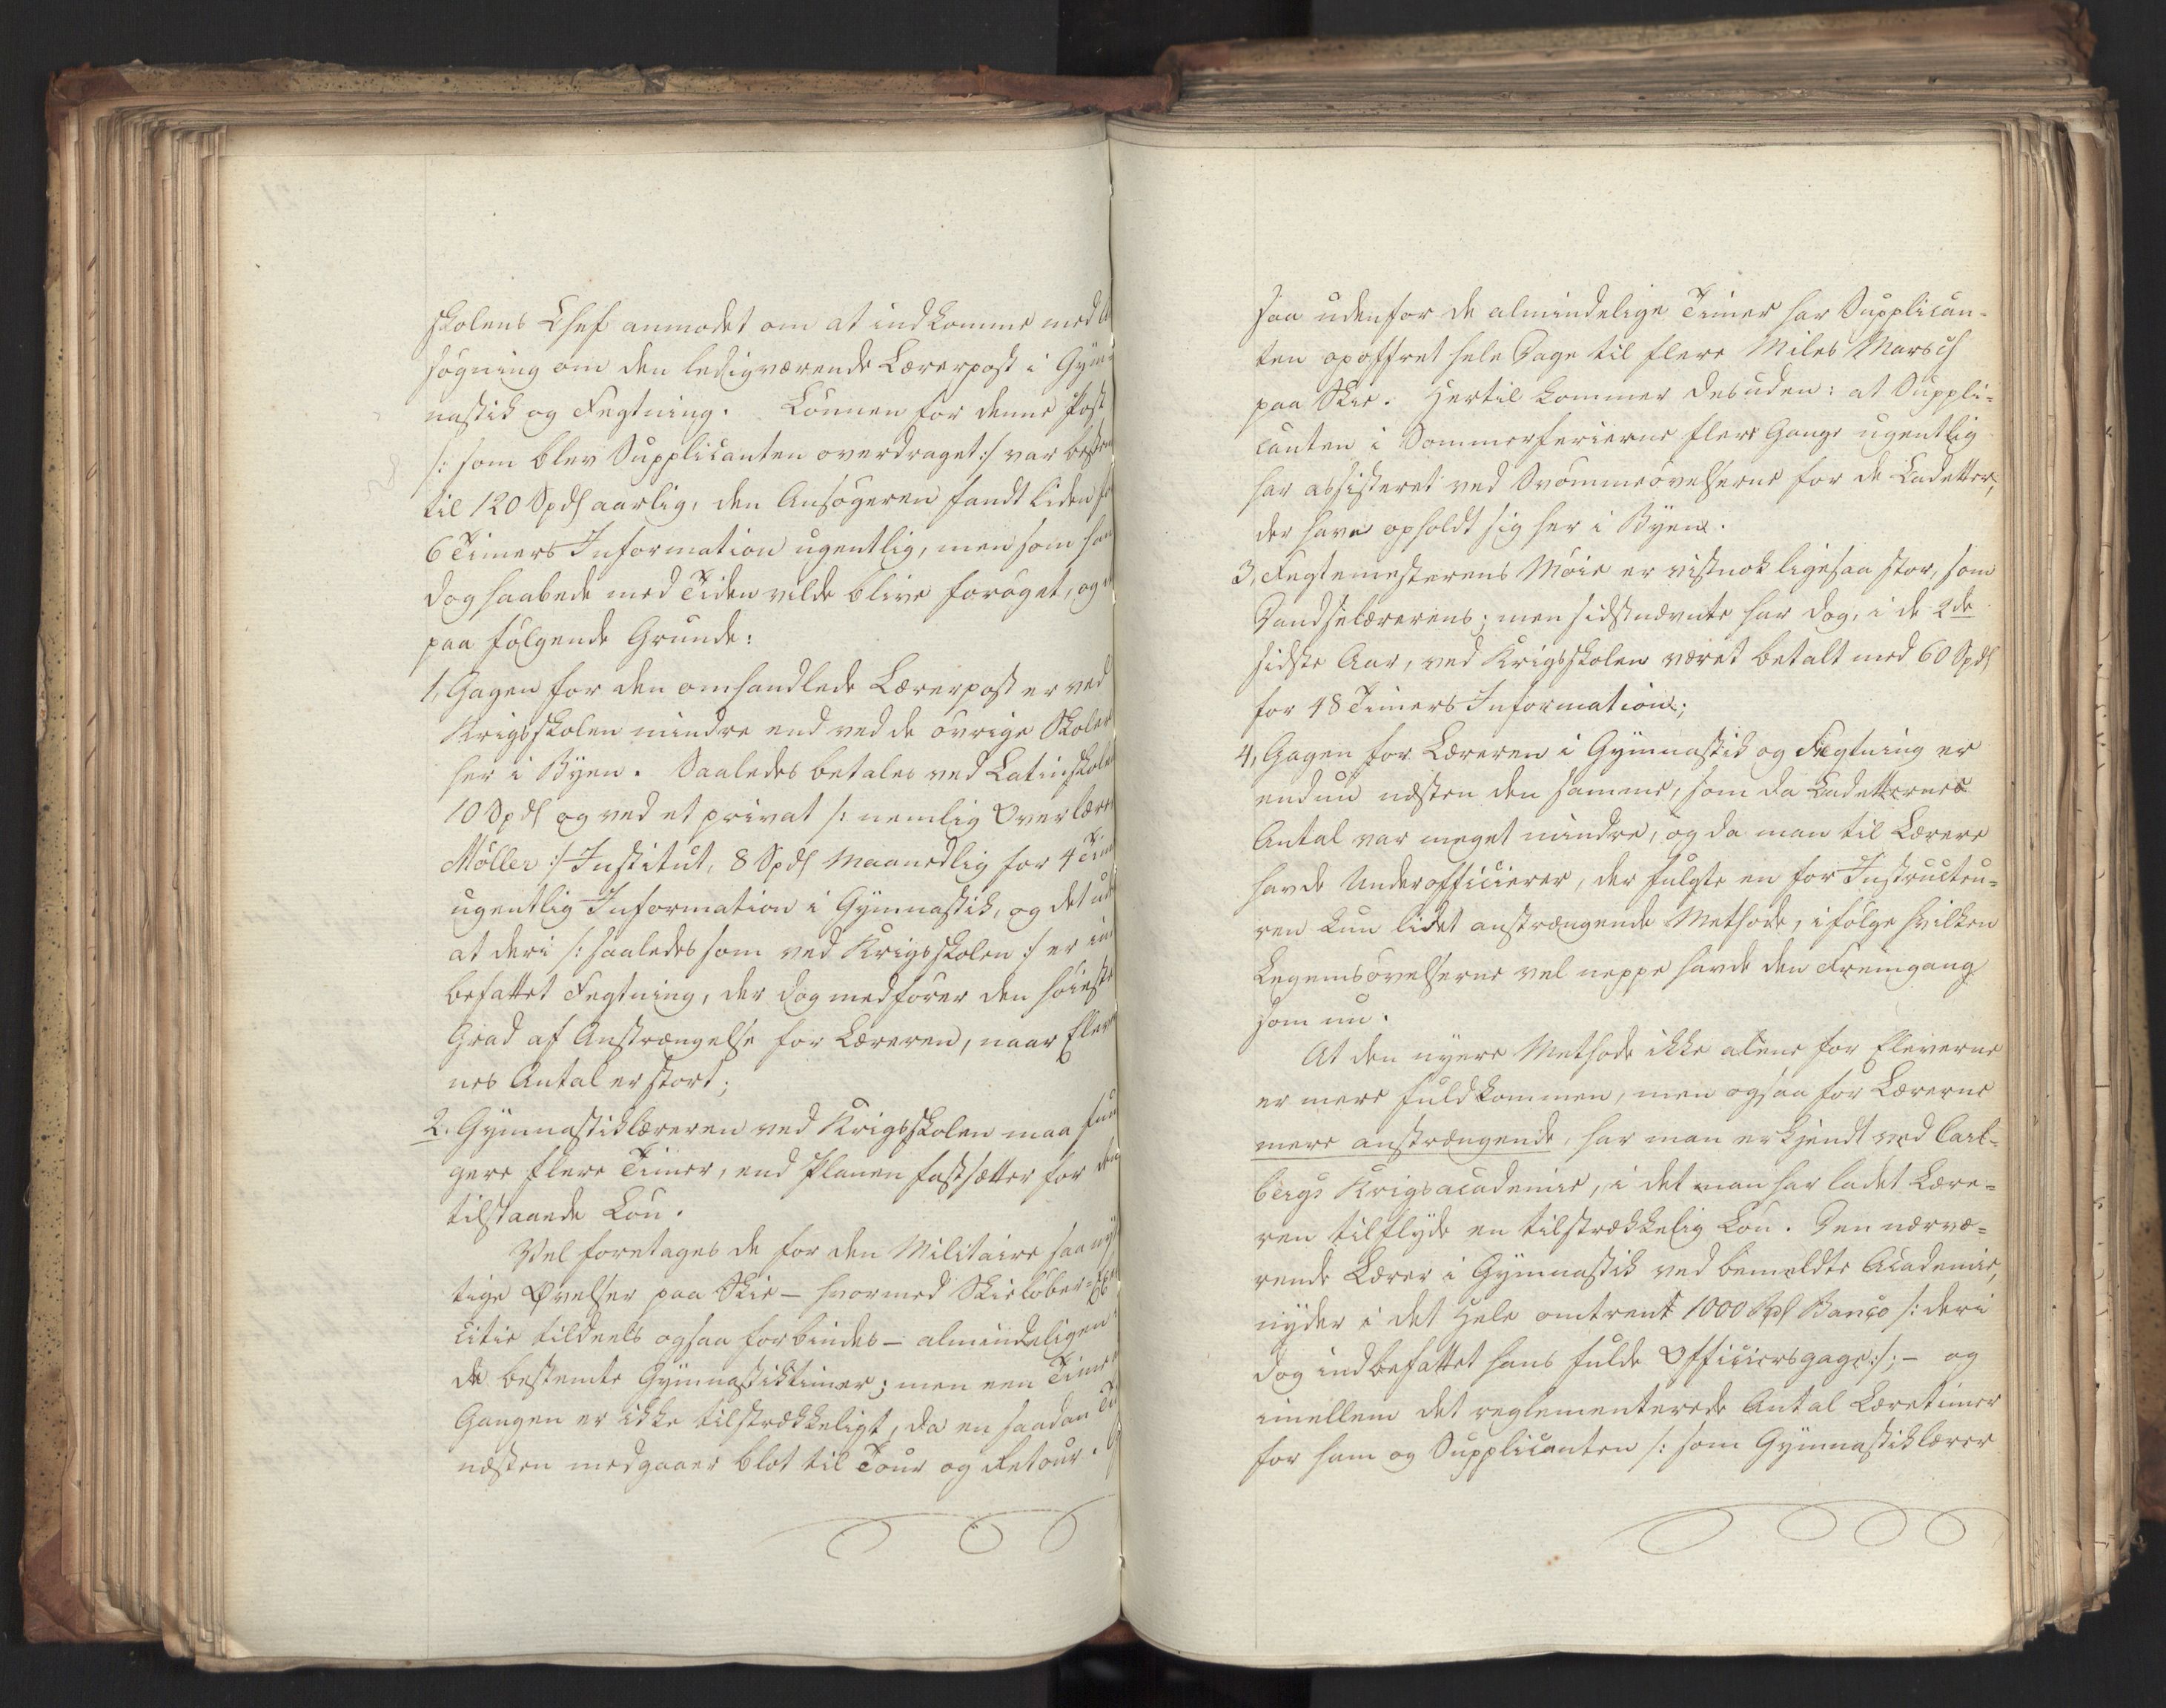 skolens Chef anmodet om at indkomme med
søgning om den ledigværende Lærerpost i Gym
nastik og Fegtning. Lønnen for denne Post
/: som blev Supplicanten overdraget :/ var bestem
til 120 Spd aarlig, den Ansøgeren fandt liden
6 Timers Information ugentlig, men som han
dog haabede med Tiden vilde blive forøget, og
paa følgende Grunde:
1, Gagen for den omhandlede Lærerpost er ved
Krigsskolen mindre end ved de øvrige Skoler
her i Byen. Saaledes betales ved Latinskolen
10 Spd og ved et privat /: nemlig Overlærer
Møller :/ Institut, 8 Spd Maanedlig for 4 Tim
ugentlig Information i Gymnastik, og det ud
at deri /: saaledes som ved Krigsskolen :/ er ind
befattet Fegtning, der dog medfører den høieste
Grad af Anstrængelse for Læreren, naar Elever
nes Antal er stort;
2. Gymnastiklæreren ved Krigsskolen maa fun
gere flere Timer, end Planen fastsætter for den
tilstaaende Løn.
Vel foretages de for den Militaire saa nyt
tige Øvelser paa Skie – hvormed Skieløber-Ex
citie tildeels ogsaa forbindes – almindeligen
de bestemte Gymnastiktimer; men een Time
Gangen er ikke tilstrækkeligt, da en saadan
næsten medgaaer blot til Tour og Retour.
saa udenfor de almindelige Timer har Supplican-
ten opoffret hele Dage til flere Miles Marsch
paa Skie. Hertil kommer desuden: at Suppli-
canten i Sommerferierne flere Gange ugentlig
har assisteret ved Svømmeøvelserne for de Cadetter,
der have opholdt sig her i Byen.
3, Fegtemesterens Møie er vistnok ligesaa stor, som
Dandselærerens; men sidstnævnte har dog, i de 2de
sidste Aar, ved Krigsskolen været betalt med 60 Spd
for 48 Timers Information;
4, Gagen for Læreren i Gymnastik og Fegtning er
endnu næsten den samme, som da Cadetternes
Antal var meget mindre, og da man til Lærere
havde Underofficierer, der fulgte en for Instructeu-
ren kun lidet anstrængende Methode, ifølge hvilken
Legemsøvelserne vel neppe havde den Fremgang
som nu.
At den nyere Methode ikke alene for Eleverne
er mere fuldkommen, men ogsaa for Lærerne
mere anstrængende, har man erkjendt ved Carl-
bergs Krigsacademie, i det man har ladet Lære-
ren tilflyde en tilstrækkelig Løn. Den nærvæ-
rende Lærer i Gymnastik ved bemeldte Academie,
nyder i det Hele omtrent 1000 Rd Banco /: deri
dog indbefattet hans fulde Officiersgage :/; – og
imellem det reglementerede Antal Læretimer
for ham og Supplicanten /: som Gymnastiklærer